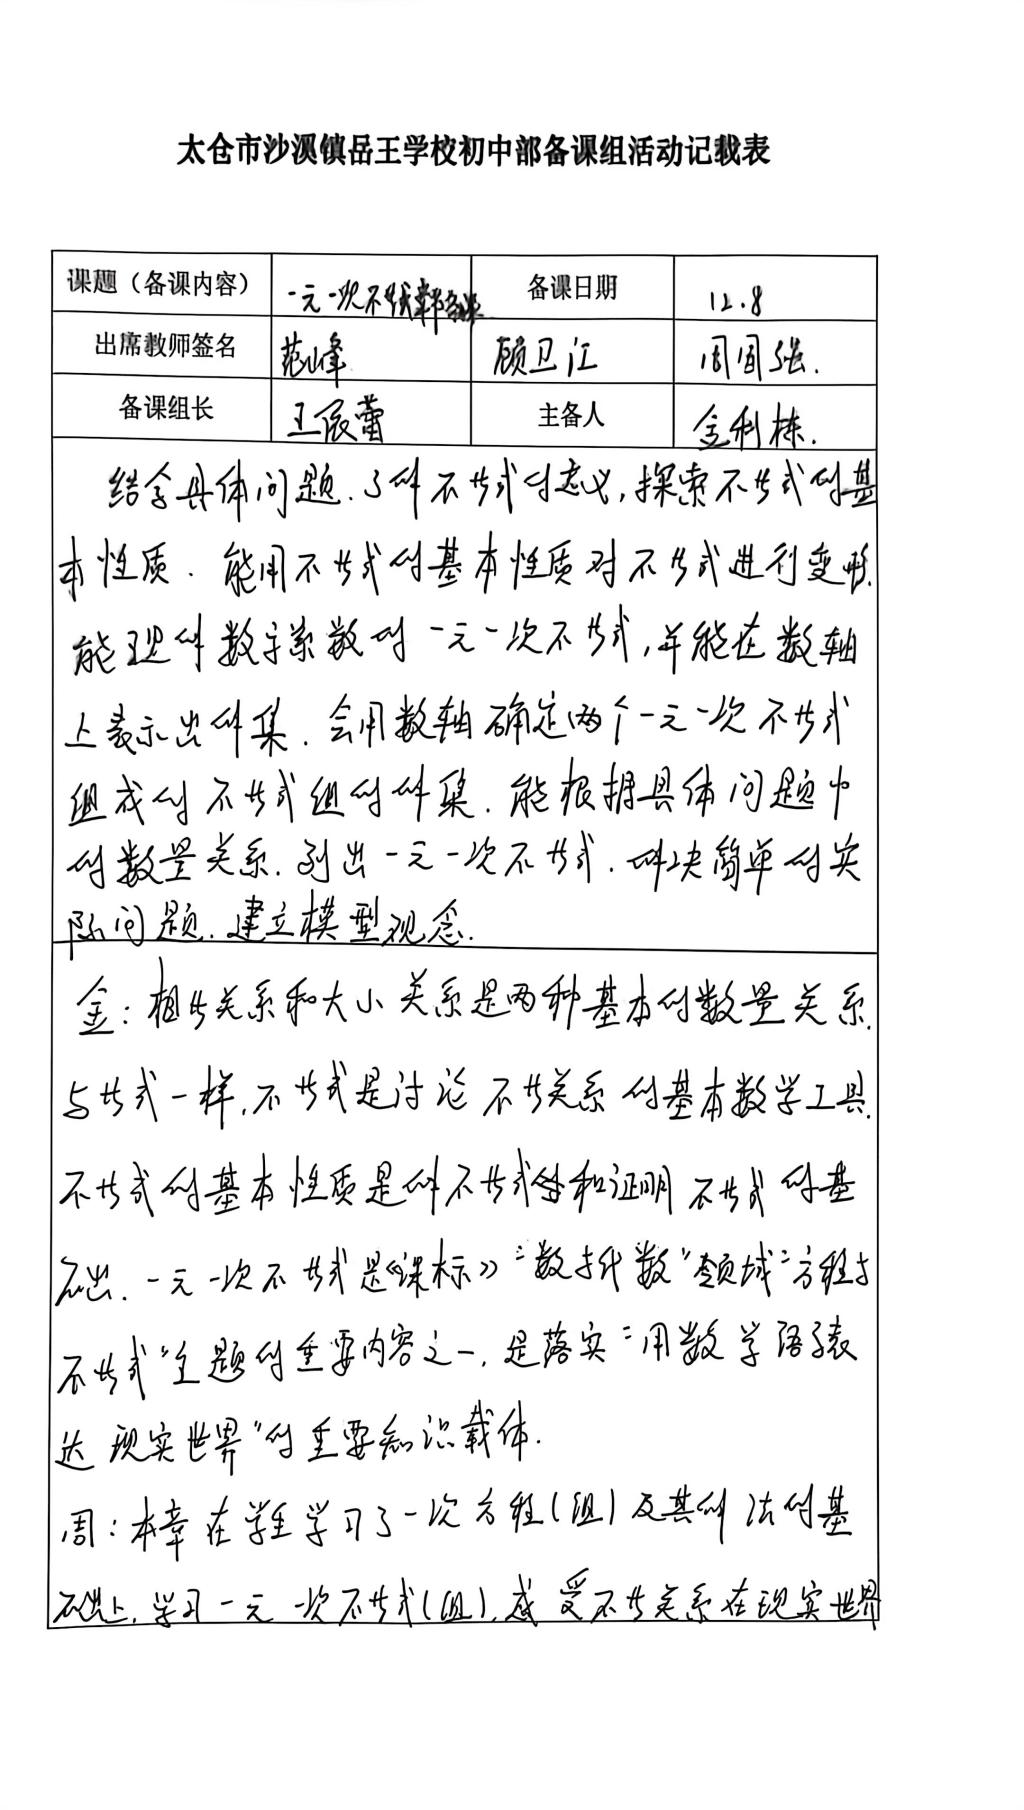 太仓市沙溪镇岳王学校初中部备课组活动记载表
课题（备课内容） 一元一次不等式章备课 备课日期 12.8
出席教师签名 范峰 顾卫江 周国强.
备课组长 王辰蕾 主备人 金利栋.
结合具体问题.了解不等式的意义,探索不等式的基
本性质.能用不等式的基本性质对不等式进行变形.
能理解数字系数的一元一次不等式,并能在数轴
上表示出解集.会用数轴确定两个一元一次不等式
组成的不等式组的解集.能根据具体问题中
的数量关系.列出一元一次不等式.解决简单的实
际问题.建立模型观念.
金:相等关系和大小关系是两种基本的数量关系.
与等式一样,不等式是讨论不等关系的基本数学工具.
不等式的基本性质是解不等式和证明不等式的基
础.一元一次不等式是《课标》“数与代数”领域“方程与
不等式”主题的重要内容之一,是落实“用数学语言表
达现实世界”的重要知识载体.
周:本章在学生学习了一次方程(组)及其解法的基
础上,学习一元一次不等式(组),感受不等关系在现实世界